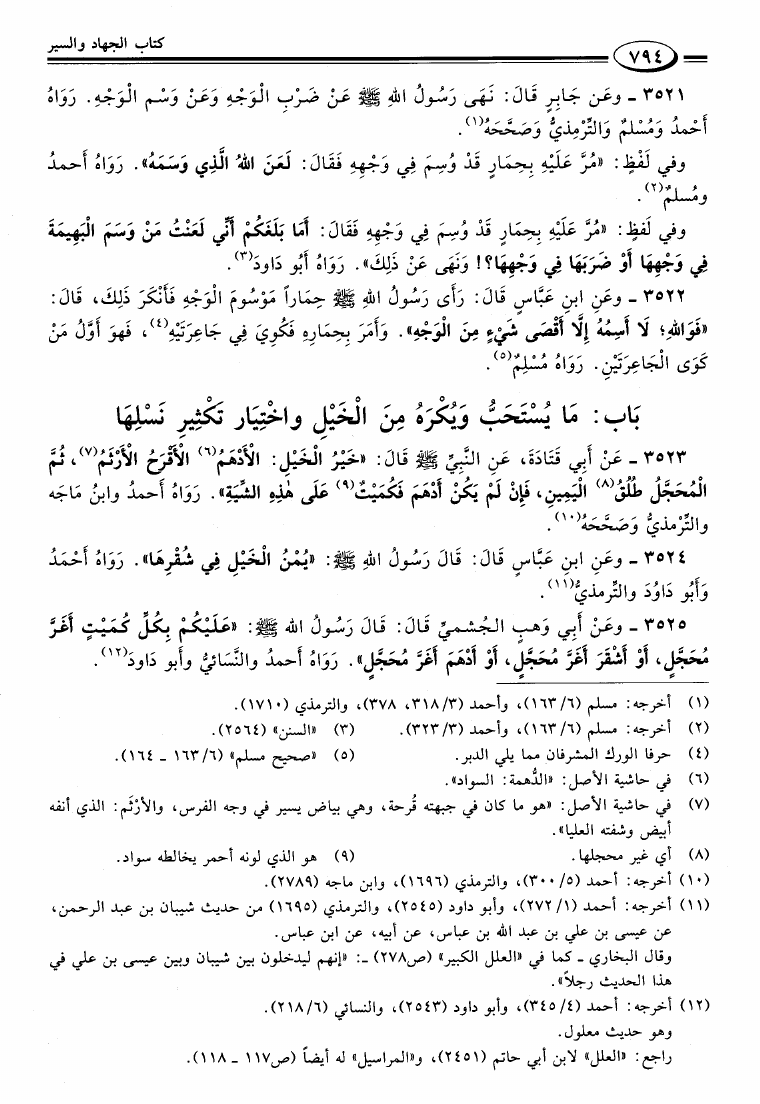 كتاب الجهاد والسير
٧٩٤
٣٥٢١ ـ وعَن جَابِرٍ قَالَ: نَهَى رَسُولُ اللهِ ﷺ عَنْ ضَرْبِ الْوَجْهِ وَعَنْ وَسْمِ الْوَجْهِ. رَوَاهُ
أَحْمدُ وَمُسْلمٌ وَالتِّرْمِذيُّ وَصَحَّحَهُ(١).
وفي لَفْظٍ: «مُرَّ عَلَيْهِ بِحِمَارٍ قَدْ وُسِمَ فِي وَجْهِهِ فَقَالَ: لَعَنَ اللهُ الَّذِي وَسَمَهُ». رَوَاهُ أَحمدُ
ومُسلمٌ(٢).
وفي لَفْظٍ: «مُرَّ عَلَيْهِ بِحِمَارٍ قَدْ وُسِمَ فِي وَجْهِهِ فَقَالَ: أَمَا بَلَغَكُمْ أَنِّي لَعَنْتُ مَنْ وَسَمَ الْبَهِيمَةَ
فِي وَجْهِهَا أَوْ ضَرَبَهَا فِي وَجْهِهَا؟! وَنَهَى عَنْ ذَلِكَ». رَوَاهُ أَبُو دَاودَ(٣).
٣٥٢٢ ـ وعَنِ ابنِ عَبَّاسٍ قَالَ: رَأَى رَسُولُ اللهِ ﷺ حِمَاراً مَوْسُومَ الْوَجْهِ فَأَنْكَرَ ذَلِكَ، قَالَ:
«فَوَاللهِ؛ لَا أَسِمُهُ إِلَّا أَقْصَى شَيْءٍ مِنَ الْوَجْهِ». وَأَمَرَ بِحِمَارِهِ فَكُوِيَ فِي جَاعِرَتَيْهِ(٤)، فَهوَ أَوَّلُ مَنْ
كَوَى الْجَاعِرَتَيْنِ. رَوَاهُ مُسْلِمٌ(٥).
بَاب: مَا يُسْتَحَبُّ وَيُكْرَهُ مِنَ الْخَيْلِ واخْتِيَار تَكْثِيرِ نَسْلِهَا
٣٥٢٣ ـ عَنْ أَبِي قَتَادَةَ، عَنِ النَّبِيِّ ﷺ قَالَ: «خَيْرُ الْخَيْلِ: الْأَدْهَمُ(٦) الْأَقْرَحُ الْأَرْثَمُ(٧)، ثُمَّ
الْمُحَجَّلُ طُلُقُ(٨) الْيَمِينِ، فَإِنْ لَمْ يَكُنْ أَدْهَمَ فَكُمَيْتٌ(٩) عَلَى هٰذِهِ الشِّيَةِ». رَوَاهُ أَحمدُ وابنُ مَاجَه
والتِّرْمذيُّ وَصَحَّحَهُ(١٠).
٣٥٢٤ ـ وعَنِ ابنِ عَبَّاسٍ قَالَ: قَالَ رَسُولُ اللهِ ﷺ: «يُمْنُ الْخَيْلِ فِي شُقْرِهَا». رَوَاهُ أَحْمَدُ
وَأَبُو دَاوُدَ والتِّرمذيُّ(١١).
٣٥٢٥ ـ وعَنْ أَبِي وَهبٍ الجُشميِّ قَالَ: قَالَ رَسُولُ الله ﷺ: «عَلَيْكُمْ بِكُلِّ كُمَيْتٍ أَغَرَّ
مُحَجَّلٍ، أَوْ أَشْقَرَ أَغَرَّ مُحَجَّلٍ، أَوْ أَدْهَمَ أَغَرَّ مُحَجَّلٍ». رَوَاهُ أَحمدُ والنَّسَائيُّ وأَبو دَاودَ(١٢).
(١) أخرجه: مسلم (٦/ ١٦٣)، وأحمد (٣/ ٣١٨، ٣٧٨)، والترمذي (١٧١٠).
(٢) أخرجه: مسلم (٦/ ١٦٣)، وأحمد (٣/ ٣٢٣). (٣) «السنن» (٢٥٦٤).
(٤) حرفا الورك المشرفان مما يلي الدبر. (٥) «صحيح مسلم» (٦/ ١٦٣ ـ ١٦٤).
(٦) في حاشية الأصل: «الدُّهمة: السواد».
(٧) في حاشية الأصل: «هو ما كان في جبهته قُرحة، وهي بياض يسير في وجه الفرس، والأرْثَم: الذي أنفه
أبيض وشفته العليا».
(٨) أي غير محجلها. (٩) هو الذي لونه أحمر يخالطه سواد.
(١٠) أخرجه: أحمد (٥/ ٣٠٠)، والترمذي (١٦٩٦)، وابن ماجه (٢٧٨٩).
(١١) أخرجه: أحمد (١/ ٢٧٢)، وأبو داود (٢٥٤٥)، والترمذي (١٦٩٥) من حديث شيبان بن عبد الرحمن،
عن عيسى بن علي بن عبد الله بن عباس، عن أبيه، عن ابن عباس.
وقال البخاري ـ كما في «العلل الكبير» (ص٢٧٨) ـ: «إنهم ليدخلون بين شيبان وبين عيسى بن علي في
هذا الحديث رجلاً».
(١٢) أخرجه: أحمد (٤/ ٣٤٥)، وأبو داود (٢٥٤٣)، والنسائي (٦/ ٢١٨).
وهو حديث معلول.
راجع: «العلل» لابن أبي حاتم (٢٤٥١)، و«المراسيل» له أيضاً (ص١١٧ ـ ١١٨).